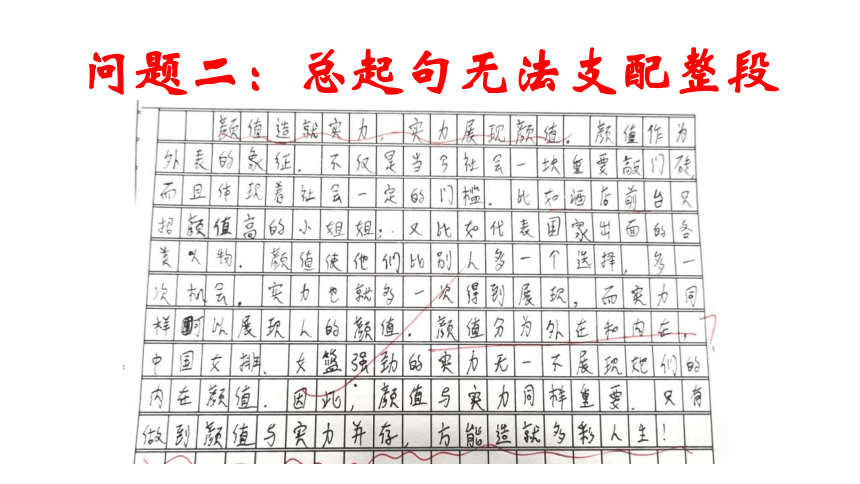 问题二：总起句无法支配整段
颜值造就实力，实力展现颜值。颜值作为
外表的象征，不仅是当今社会一块重要敲门砖，
而且体现着社会一定的门槛。比如酒店前台只
招颜值高的小姐姐；又比如代表国家出面的各
类人物。颜值使他们比别人多一个选择，多一
次机会。实力也就多一次得到展现，而实力同
样可以展现人的颜值。颜值分为外在和内在，
中国女排、女篮强劲的实力无一不展现她们的
内在颜值。因此，颜值与实力同样重要，只有
做到颜值与实力并存，方能造就多彩人生！
?